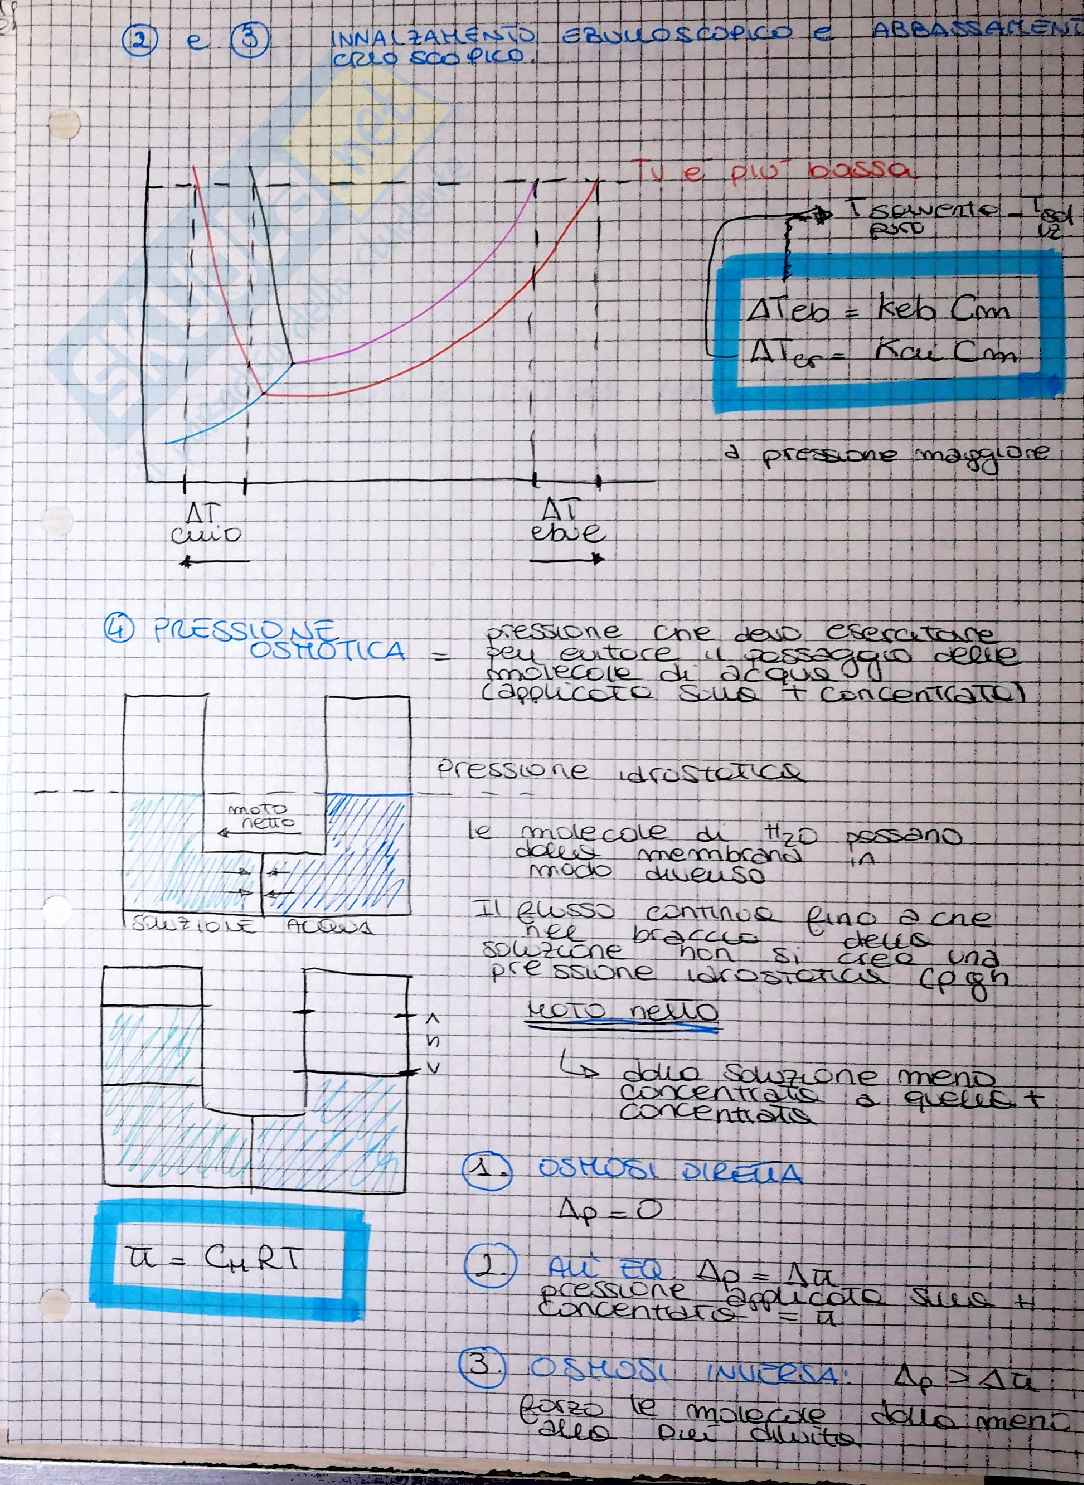 ② e ③ INNALZAMENTO EBULLOSCOPICO e ABBASSAMENT
CRIOSCOPICO.
Tv e più bassa
T solvente - T sol
puro uz
ΔTeb = Keb Cm
ΔTcr = Kcri Cm
a pressione maggiore
ΔT ΔT
crio ebue
④ PRESSIONE
OSMOTICA =
pressione che devo esercitare
per evitare il passaggio delle
molecole di acqua
(applicata sulla + concentrata)
pressione idrostatica
moto
netto
le molecole di H2O passano
dalla membrana in
modo diverso
SOLUZIONE ACQUA
Il flusso continua fino a che
nel braccio della
soluzione non si crea una
pressione idrostatica (ρgh
h
MOTO netto
↳ dalla soluzione meno
concentrata a quella +
concentrata
1. OSMOSI DIRETTA
Δp = 0
π = CM RT
2. ALL' EQ. Δp = Δπ
pressione applicata sulla +
concentrata = π
3. OSMOSI INVERSA: Δp > Δπ
forzo le molecole dalla meno
alla più diluita
EKUWEL net